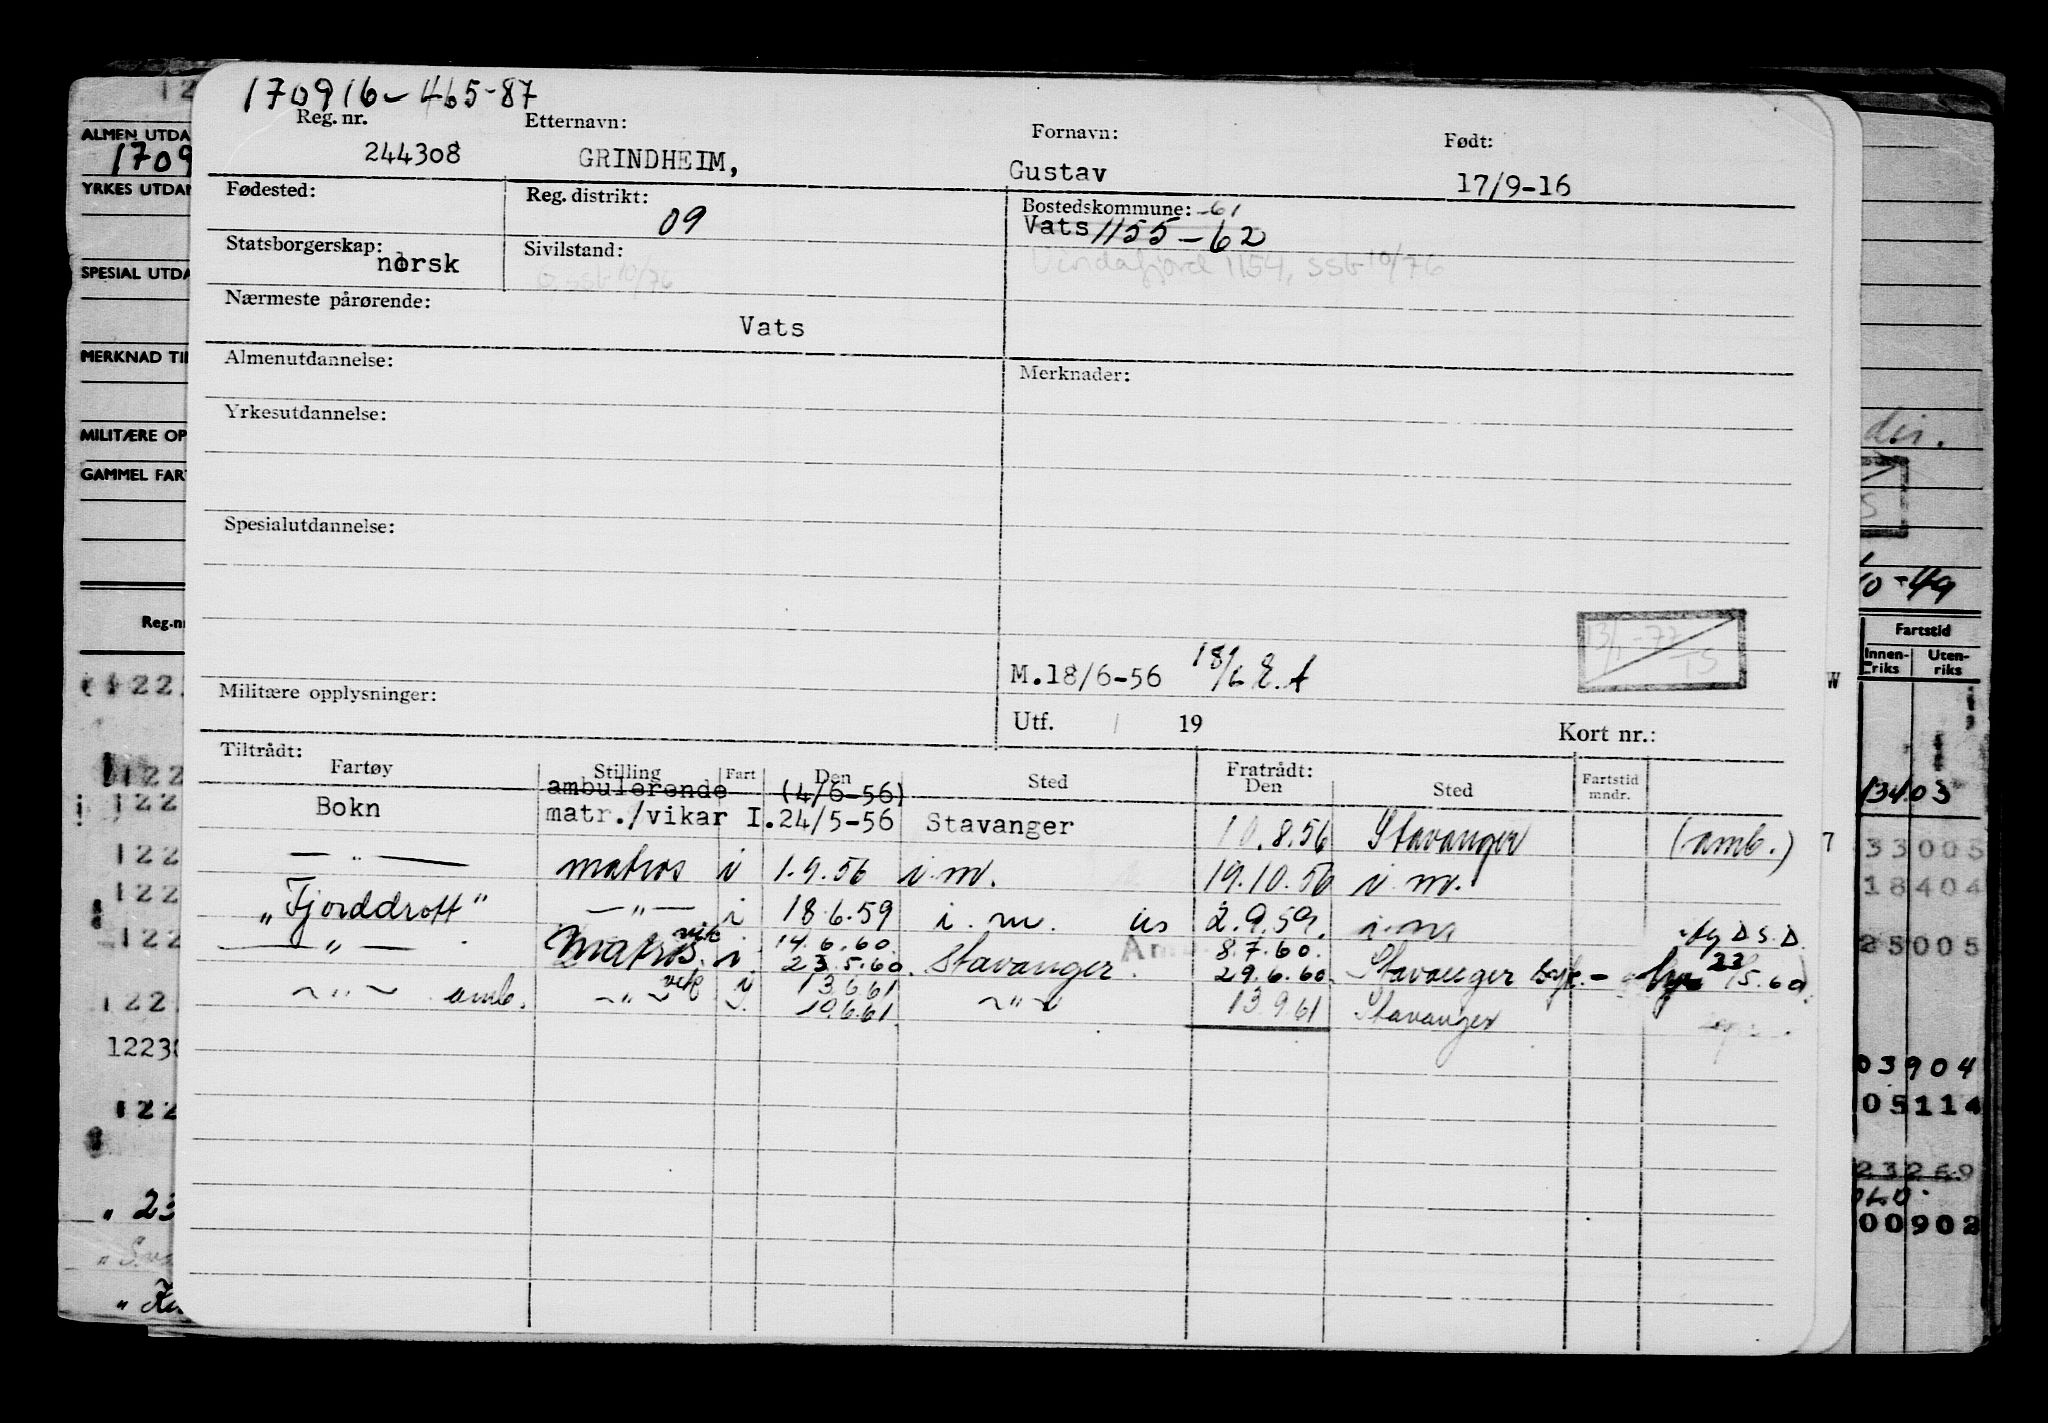 170916-465-87
Reg. nr. Etternavn: Fornavn: Født:
244308 GRINDHEIM, Gustav 17/9-16
Fødested: Reg. distrikt: 09 Bostedskommune: -61
Vats 1155-62
Statsborgerskap: norsk Sivilstand: Vindafjord 1154, SSB 10/76
SSB 10/76
Nærmeste pårørende:
Vats
Almenutdannelse: Merknader:
Yrkesutdannelse:
Spesialutdannelse:
13/1-77
TS
M.18/6-56 18/6 E.A
Militære opplysninger:
Utf. / 19 Kort nr.:
Tiltrådt: Fratrådt:
Fartøy Stilling Fart Den Sted Den Sted Fartstid mndr.
ambulerende (4/6-56)
Bokn matr./vikar I. 24/5-56 Stavanger 10.8.56 Stavanger (amb.)
— " — matros i 1.9.56 i.m. 19.10.56 i.m.
"Fjorddrott" — " — i 18.6.59 i.m. 2.9.59. i.m D.S.D.
vik 14.6.60. 8.7.60.
— " — Matros i 23.5.60. Stavanger. 29.6.60. Stavanger 23/5.60
vik 13.6.61
— " — amb. — " — i 10.6.61. — " — 13.9.61 Stavanger
ALMEN UTDA
1709
YRKES UTDAN
SPESIAL UTDA
MERKNAD TI
MILITÆRE OP
GAMMEL FAR
Reg.n
122
122
122
122
122
122
122
12230
122
" 23
10-49
Fartstid
Innenriks Utenriks
W
7
13403
33005
18404
25005
03904
05114
23269
00902